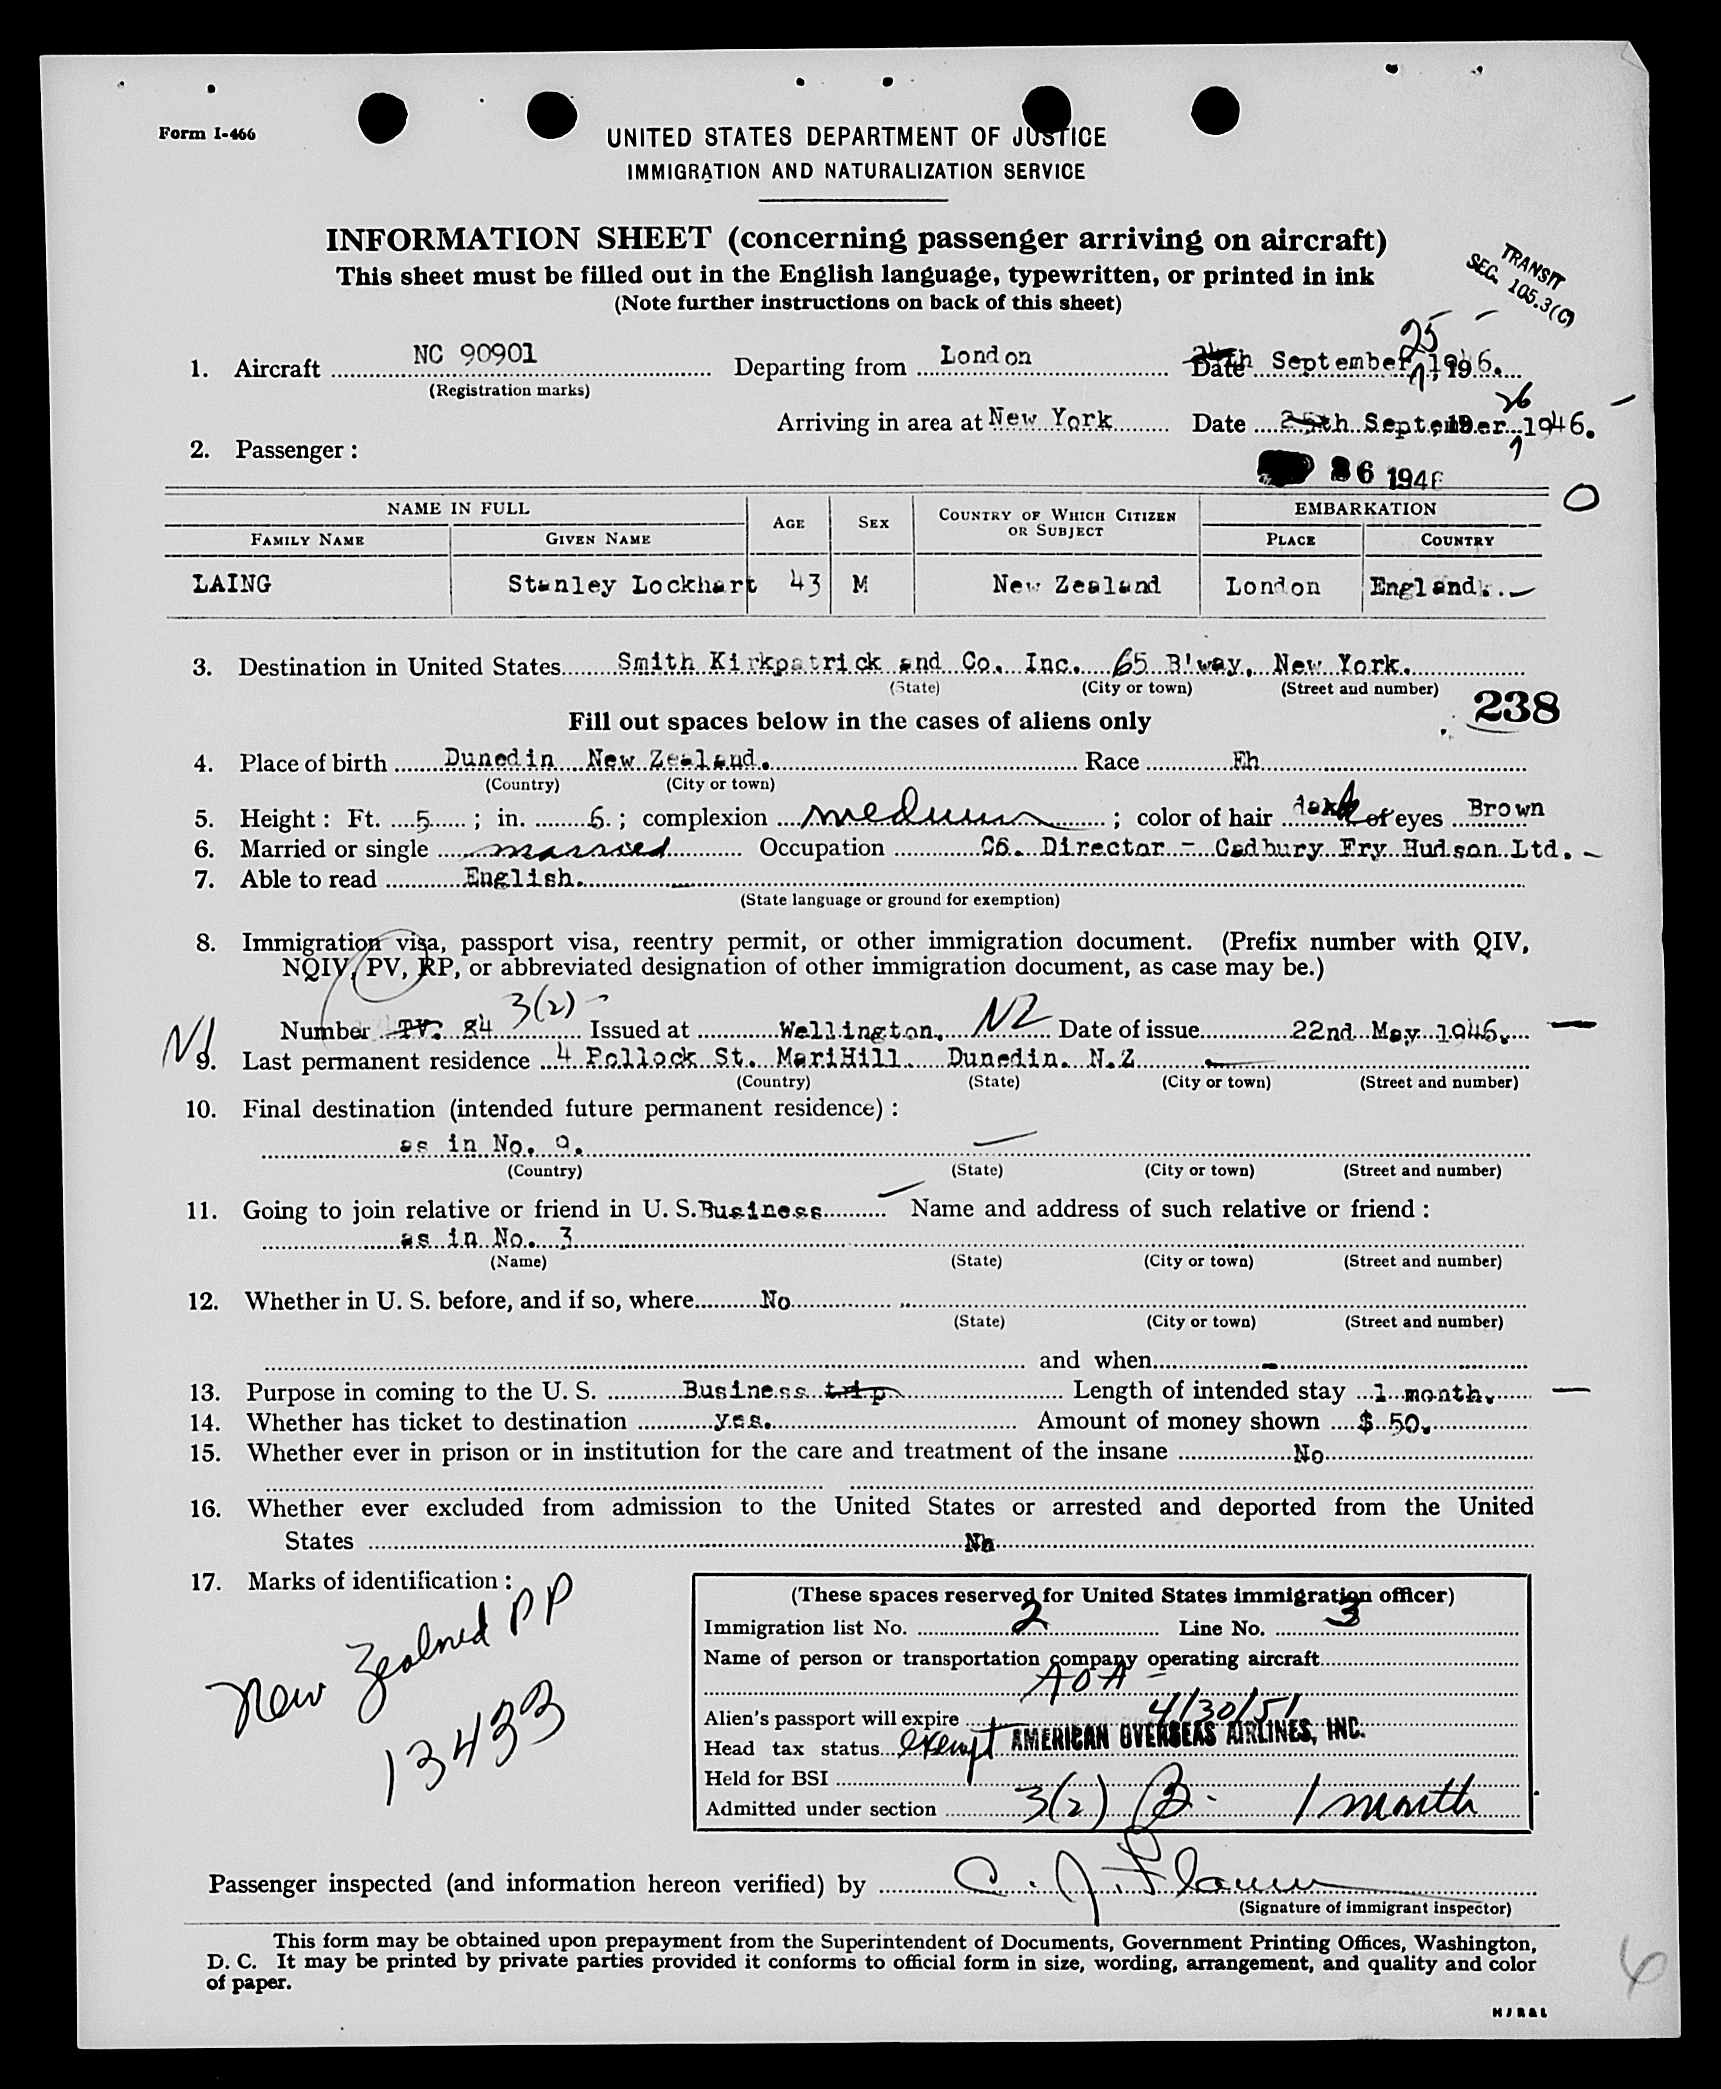 Form I-466
UNITED STATES DEPARTMENT OF JUSTICE
IMMIGRATION AND NATURALIZATION SERVICE
INFORMATION SHEET (concerning passenger arriving on aircraft)
This sheet must be filled out in the English language, typewritten, or printed in ink
(Note further instructions on back of this sheet)
TRANSIT
SEC. 105.3(C)
25
1. Aircraft NC 90901 Departing from London Date September 1946.
(Registration marks)
26
Arriving in area at New York Date 25th September 1946.
2. Passenger:
26 1946
NAME IN FULL AGE SEX COUNTRY OF WHICH CITIZEN OR SUBJECT EMBARKATION
FAMILY NAME GIVEN NAME PLACE COUNTRY
LAING Stanley Lockhart 43 M New Zealand London England.
3. Destination in United States Smith Kirkpatrick and Co. Inc. 65 B'way, New York.
(State) (City or town) (Street and number)
238
Fill out spaces below in the cases of aliens only
4. Place of birth Dunedin New Zealand. Race Eh
(Country) (City or town)
5. Height: Ft. 5; in. 6.; complexion medium; color of hair dark of eyes Brown
6. Married or single married Occupation C6. Director - Cadbury Fry Hudson Ltd.
7. Able to read English.
(State language or ground for exemption)
8. Immigration visa, passport visa, reentry permit, or other immigration document. (Prefix number with QIV,
NQIV, PV, RP, or abbreviated designation of other immigration document, as case may be.)
3(2)
Number TV: 84 Issued at Wellington, NZ Date of issue 22nd May 1946.
9. Last permanent residence 4 Pollock St. MariHill Dunedin. N.Z
(Country) (State) (City or town) (Street and number)
10. Final destination (intended future permanent residence):
as in No. 9.
(Country) (State) (City or town) (Street and number)
11. Going to join relative or friend in U. S. Business Name and address of such relative or friend:
as in No. 3
(Name) (State) (City or town) (Street and number)
12. Whether in U. S. before, and if so, where No
(State) (City or town) (Street and number)
and when -
13. Purpose in coming to the U. S. Business trip Length of intended stay 1 month.
14. Whether has ticket to destination yes. Amount of money shown $ 50.
15. Whether ever in prison or in institution for the care and treatment of the insane No
16. Whether ever excluded from admission to the United States or arrested and deported from the United
States No
17. Marks of identification:
New Zealand PP
13433
(These spaces reserved for United States immigration officer)
Immigration list No. 2 Line No. 3
Name of person or transportation company operating aircraft
AOA
Alien's passport will expire 4/30/51
Head tax status exempt AMERICAN OVERSEAS AIRLINES, INC.
Held for BSI
Admitted under section 3(2) B. 1 month
Passenger inspected (and information hereon verified) by C. J.
(Signature of immigrant inspector)
This form may be obtained upon prepayment from the Superintendent of Documents, Government Printing Offices, Washington,
D. C. It may be printed by private parties provided it conforms to official form in size, wording, arrangement, and quality and color
of paper.
6